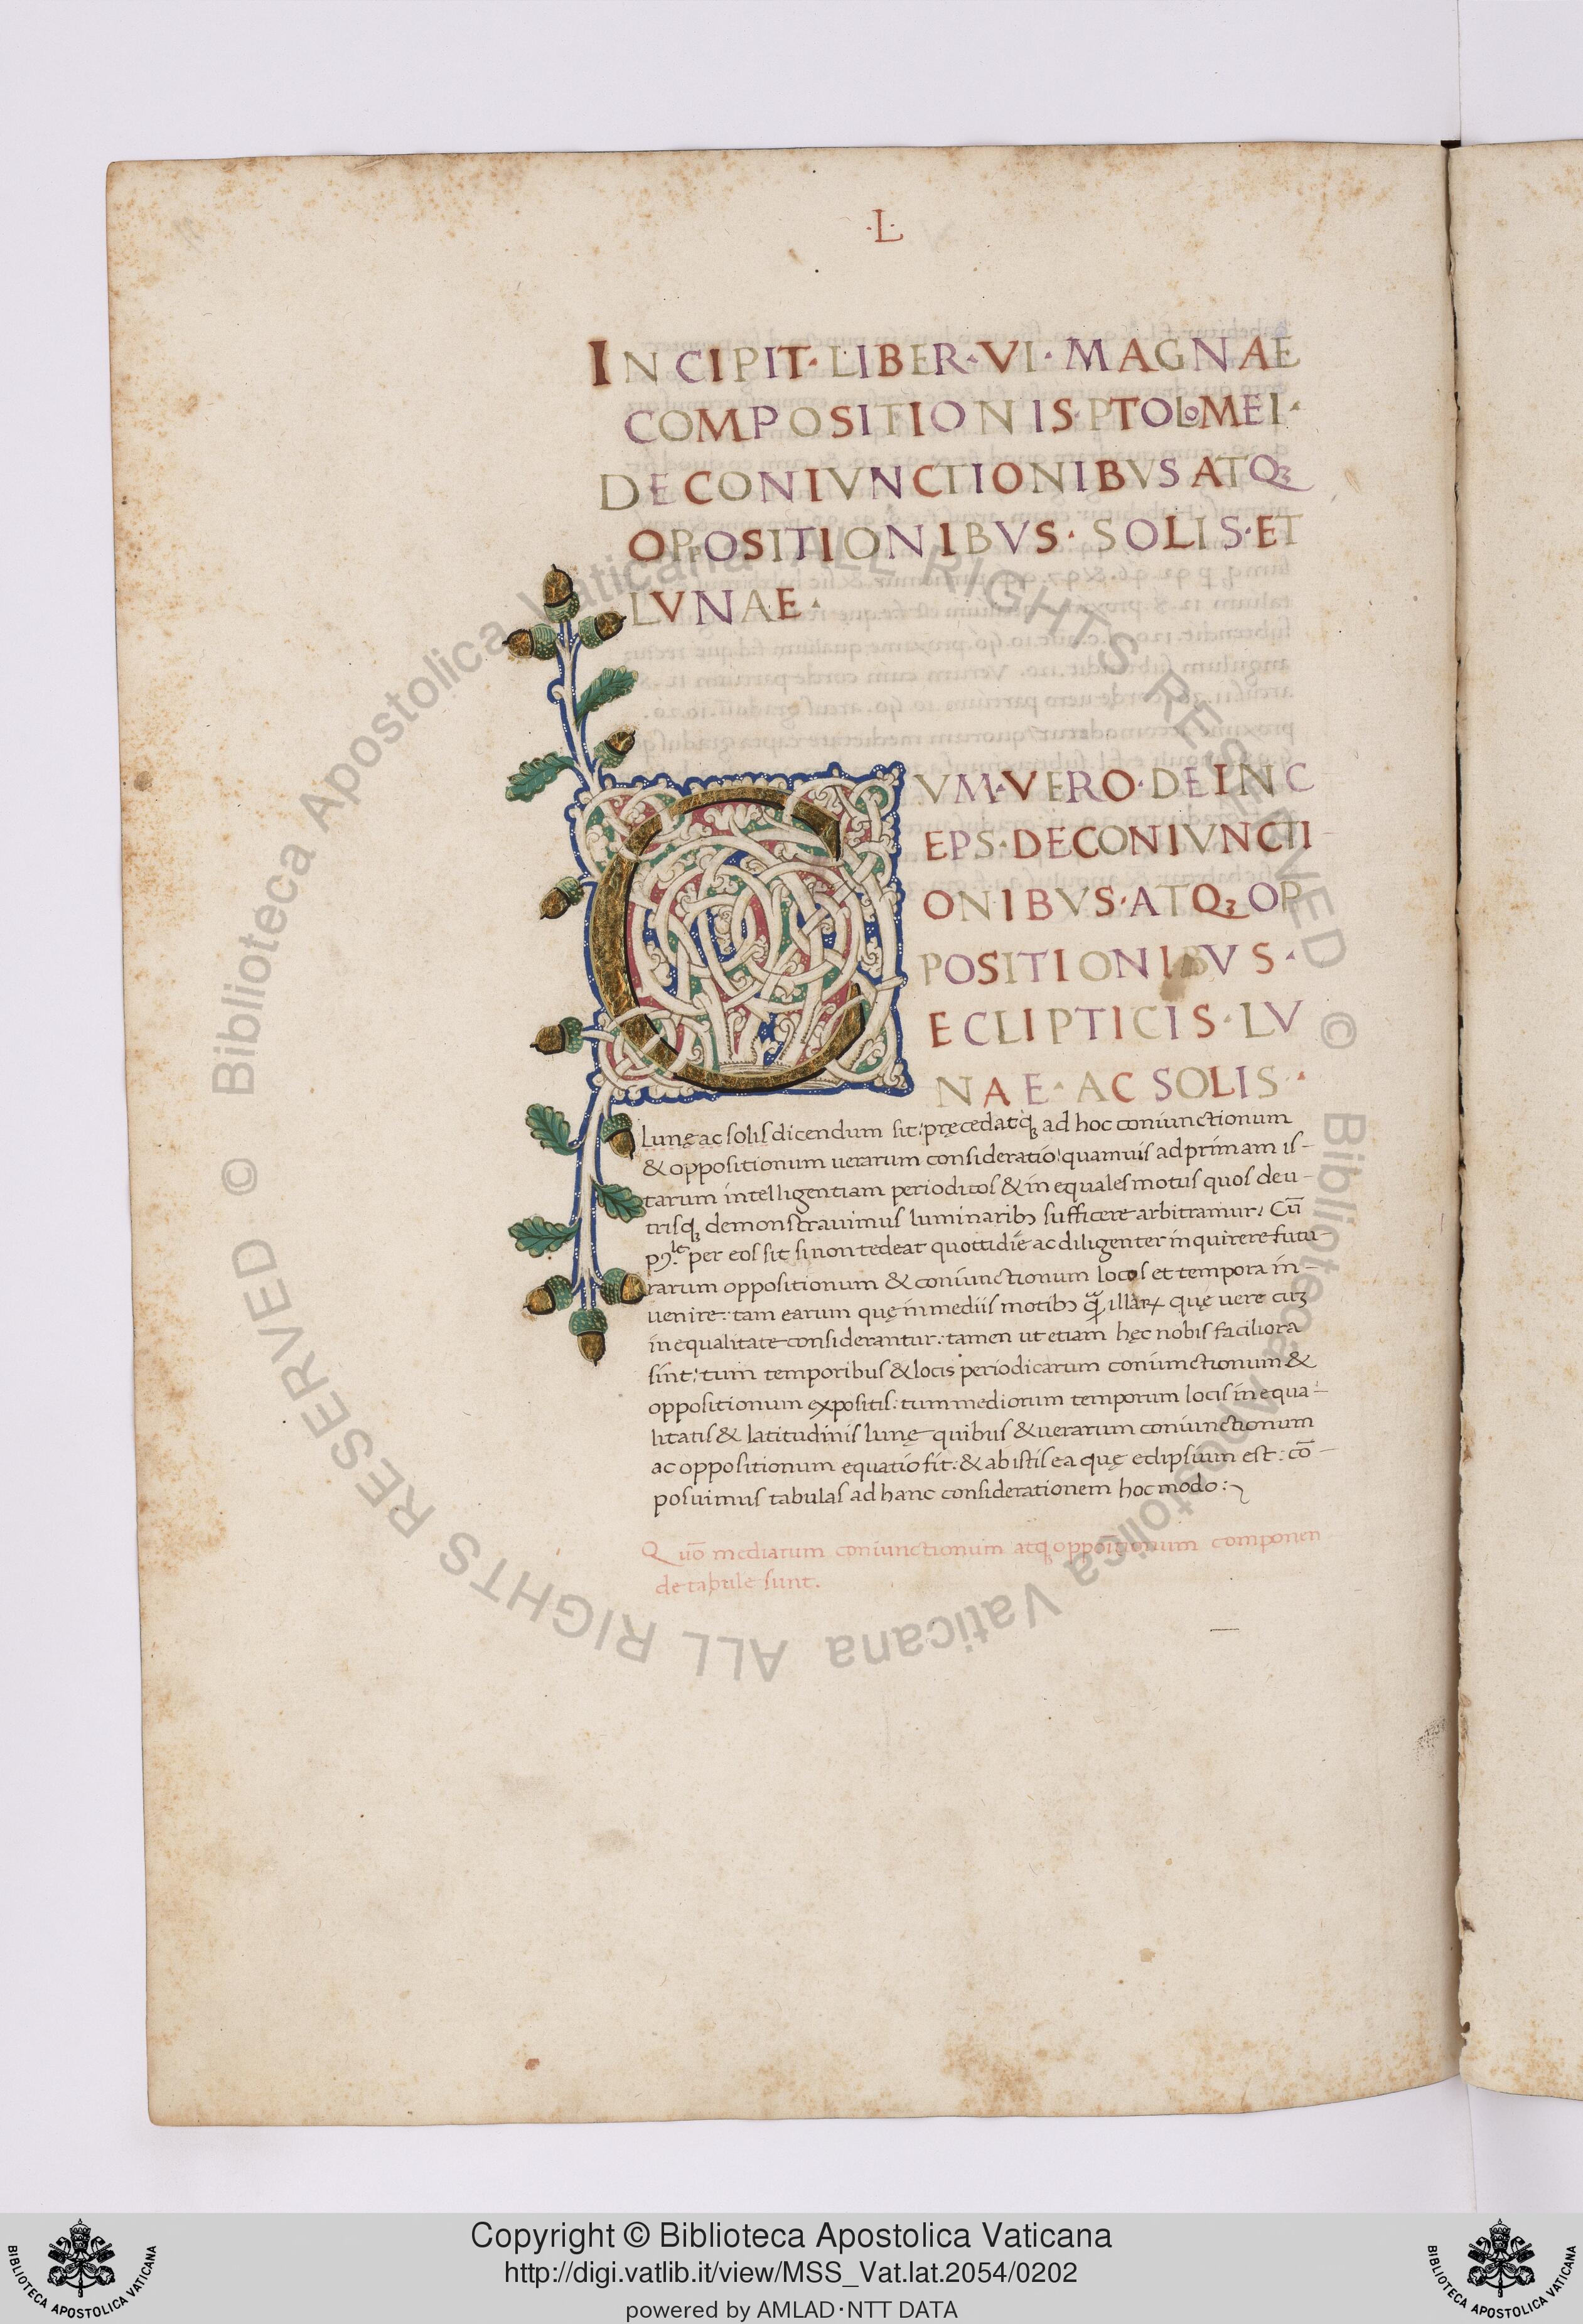 ·L·
INCIPIT· LIBER· VI· MAGNAE
COMPOSITIONIS· PTOLOMEI·
DE CONIVNCTIONIBVS ATQꝫ
OPPOSITIONIBVS· SOLIS· ET
LVNAE·
CVM· VERO· DEINC
EPS· DE CONIVNCTI
ONIBVS· ATQꝫ OP
POSITIONIBVS·
ECLIPTICIS· LV
NAE· AC SOLIS·
Lunę ac solis dicendum sit: pręcedatqꝫ ad hoc coniunctionum
& oppositionum uerarum consideratio: quamuis ad primam is-
tarum intelligentiam periodicos & inequales motus quos de u-
trisqꝫ demonstrauimus luminaribꝰ sufficere arbitramur. Cū
per eos sit si non tedeat quottidie ac diligenter inquirere futu-
rarum oppositionum & coniunctionum locos et tempora in-
uenire: tam earum quę in mediis motibꝰ illarꝝ quę uere cuꝫ
inequalitate considerantur: tamen ut etiam hęc nobis faciliora
sint: tum temporibus & locis periodicarum coniunctionum &
oppositionum expositis: tum mediorum temporum locis inequa-
litatis & latitudinis lunę quibus & uerarum coniunctionum
ac oppositionum equatio fit: & ab istis ea quę eclipsium est: cō-
posuimus tabulas ad hanc considerationem hoc modo:
Quō mediarum coniunctionum atqꝫ oppositionum componen
de tabule sunt.
© Biblioteca Apostolica Vaticana ALL RIGHTS RESERVED
© Biblioteca Apostolica Vaticana ALL RIGHTS RESERVED
Copyright © Biblioteca Apostolica Vaticana
http://digi.vatlib.it/view/MSS_Vat.lat.2054/0202
powered by AMLAD·NTT DATA
BIBLIOTECA APOSTOLICA VATICANA
BIBLIOTECA APOSTOLICA VATICANA